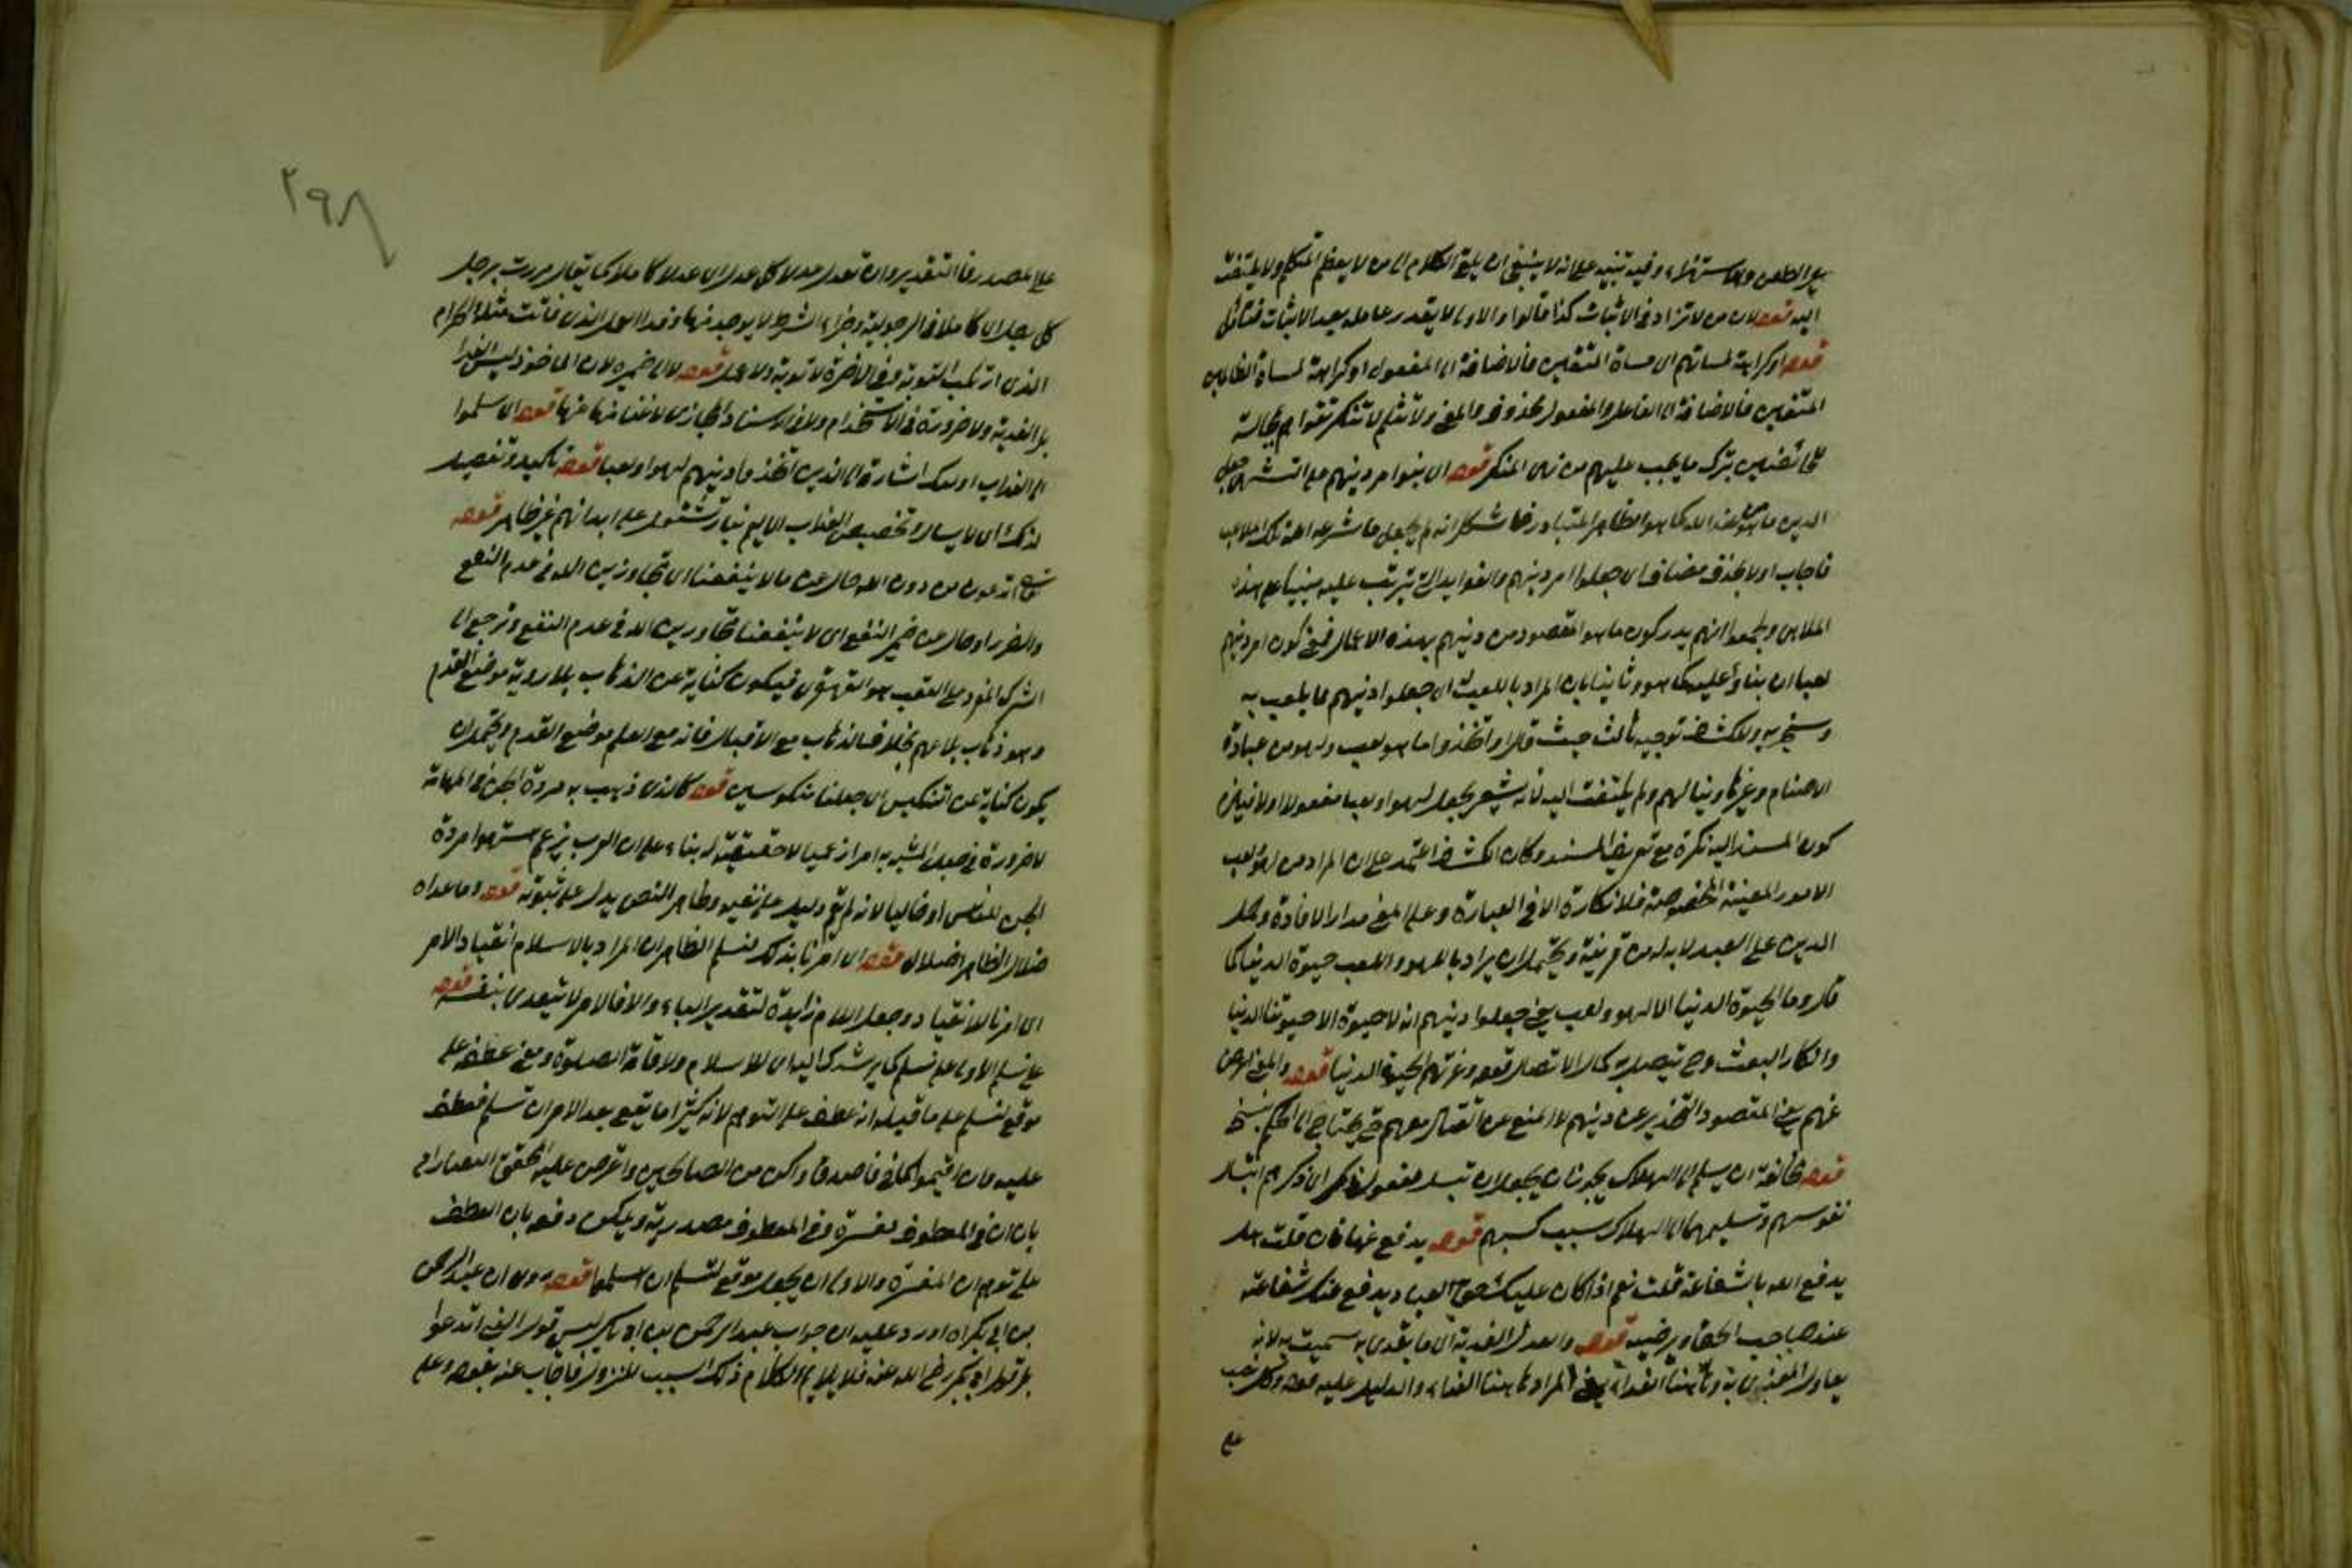 بل الطعن والاستهزاء وفيه تنبيه على انه لا ينبغي ان يلقى الكلام الى من لا يعظم المتكلم ولا يلتفت
اليه قوله لان من لا تزاد في الاثبات كذا قالوا والاولى لا يقدر عامله بعد الاثبات فتأمل
قوله او كراهة لمساتهم اى مساة المتقين فالاضافة الى المفعول او كراهة لمساة الظالمين
المتقين فالاضافة الى الفاعل والمفعول محذوف والمعنى ولا تنثلم تقواهم بمجالسة
الخائضين بترك ما يجب عليهم من نهى المنكر قوله اى بنوا امر دينهم على التشهى جعل
الدين ما هو عند الله كما هو الظاهر المتبادر فاشكل انه لم يجعل ما شرعه الله تلك الملاعب
فاجاب اولا بحذف مضاف اى جعلوا امر دينهم والفوايد التى تترتب عليه مبنيا على هذه
الملاهى وطمعوا انهم يدركون ما هو المقصود من دينهم بهذه الاعمال فمعنى كون امر دينهم
لعبا ان بناؤه عليه كما هو وثانيا بان المراد باللعب اى جعلوا دينهم ما يلعب به
وسخر به وللكشاف توجيه ثالث حيث قال او اتخذوا ما هو لعب ولهو من عبادة
الاصنام وغيرها دينا لهم ولم يلتفت اليه لانه يشعر بجعل لهوا ولعبا مفعولا اولا فيلزم
كون المسند اليه نكرة مع تعريف المسند وكان الكشاف اعتمد على ان المراد من لهو ولعب
الامور المعينة المخصوصة فلا نكارة الا في العبارة وعلى المعنى مدار الافادة وحمل
الدين على العيد لا بد له من قرينة ويحتمل ان يراد باللهو واللعب حيوة الدنيا كما
قال وما الحيوة الدنيا الا لهو ولعب يعنى جعلوا دينهم انه لا حيوة الا حيوتنا الدنيا
وانكار البعث وح يتصل به كمال الاتصال قوله وغرتهم الحيوة الدنيا قوله والمعنى اعرض
عنهم يعنى المقصود التحذير عن دينهم لا المنع عن القتال معهم حتى يحتاج الى الحكم بنسخ
قوله مخافة ان يسلم الى الهلاك يجوز ان يجعل ان تبسل مفعول ذكر اى ذكرهم ابسال
نفوسهم وتسليمها الى الهلاك بسبب كسبهم قوله يدفع عنها فان قلت هل
يدفع الله بالشفاعة قلت نعم اذا كان عليك حق العباد يدفع عنك شفاعته
عند صاحب الحق ويرضيه قوله والعدل الفدية اى ما يفدى به سميت به لانه
يعادل المفدى به وههنا الفداء يعنى المراد ههنا الفداء والدليل عليه قوله وكل نصب
على
٢٩٨
على المصدر فالتقدير وان تعدل عدلا كل عدل اى عدلا كاملا كما يقال مررت برجل
كل رجل اى كاملا في الرجولية وجزاء الشرط لا يوجد منها وفدا العدل الذى فاتت مثله الكرام
الذى ارتكب التوبة وفى الاخرة لا توبة ولا عمل قوله لا الى ضميره لان الماخوذ ليس الفدا
بل الفدية ولا ضرورة فى الاستخدام ولا فى الاسناد المجازى لاغناء منها عنها قوله اى سلموا
الى العذاب اولئك اشارة الى الذين اتخذوا دينهم لهوا ولعبا قوله تاكيد وتفصيل
لذلك اى لابسال وتخصيص العذاب الاليم بنار تشتعل على ابدانهم غير ظاهر قوله
قل اتدعون من دون الله حال عن ما لا ينفعنا اى تجاوزين الله في عدم النفع
والضر او حال من ضمير النفع اى لا ينفعنا متجاوزين الله فى عدم النفع ونرجع الى
الشرك المزدعلى العقب هو القهقرى فيكون كناية عن الذهاب بلا روية موضع القدم
وهو ذهاب بلا علم بخلاف الذهاب مع الاقبال فانه مع العلم موضع القدم ويحتمل ان
يكون كناية عن التنكيس اى جعلنا منكوسين قوله كالذى ذهبت به مردة الجن فى المهامة
لا ضرورة فى جعل المشبه به امرا زعميا لا حقيقية له بناء على ان العرب تزعم استهوا مردة
الجن للناس او خياليا لانه لم يقم دليل على نفيه وظاهر النص يدل على ثبوته قوله وما عداه
ضلال الظاهر اضلال قوله اى امرنا بذلك لنسلم الظاهر ان المراد بالاسلام انقياد الامر
اى امرنا للانقياد وجعل اللام زايدة لتقدير الباء والا فالامر لا يتعدى بنفسه قوله
على نسلم الاولى على نسلم كما يرشدك اليه اى للاسلام ولاقامة الصلوة ومعنى عطفه على
موقع لنسلم على ما قيل انه عطف على التوهم لانه كثيرا ما يقع بعد الامر ان نسلم فعطف
عليه وان اقيموا كما فى فاصدق واكن من الصالحين واعترض عليه المحقق التفتازانى
بان ان فى المعطوف مفسرة وفى المعطوف مصدرية ويمكن دفعه بان العطف
على توهم ان المفسرة والاولى ان يجعل موقع لنسلم ان اسلموا قوله روى ان عبد الرحمن
بن ابى بكر اه اورد عليه ان جواب عبد الرحمن بن ابى بكر ليس قول النبى اندعوا
بل قول ابى بكر رضى الله عنه فلا يلايم الكلام ذلك السبب للنزول فاجاب عنه بقوله وعلى